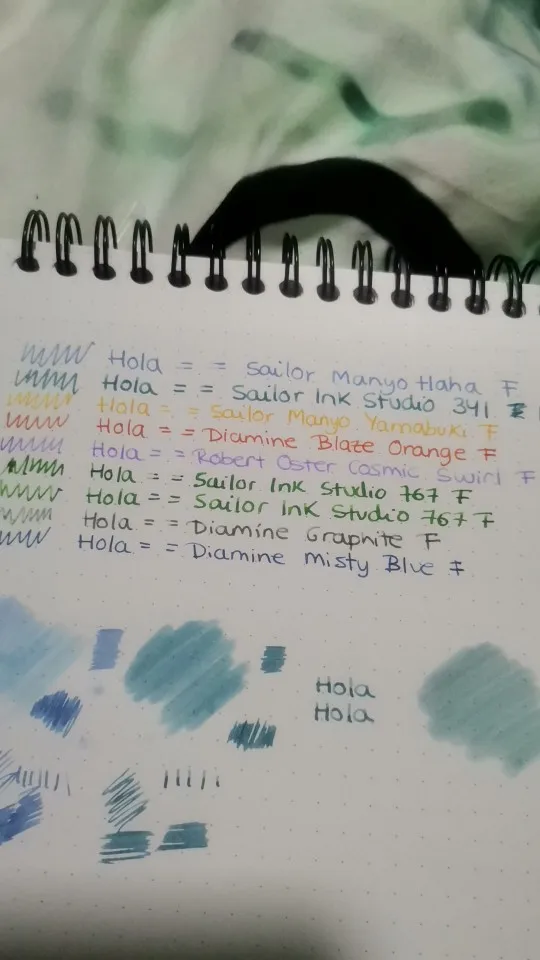 Hola = = Sailor Manyo Haha F
Hola = = Sailor Ink Studio 341 F
Hola = = Sailor Manyo Yamabuki F
Hola = = Diamine Blaze Orange F
Hola = = Robert Oster Cosmic Swirl F
Hola = = Sailor Ink Studio 767 F
Hola = = Sailor Ink Studio 767 F
Hola = = Diamine Graphite F
Hola = = Diamine Misty Blue F
Hola
Hola